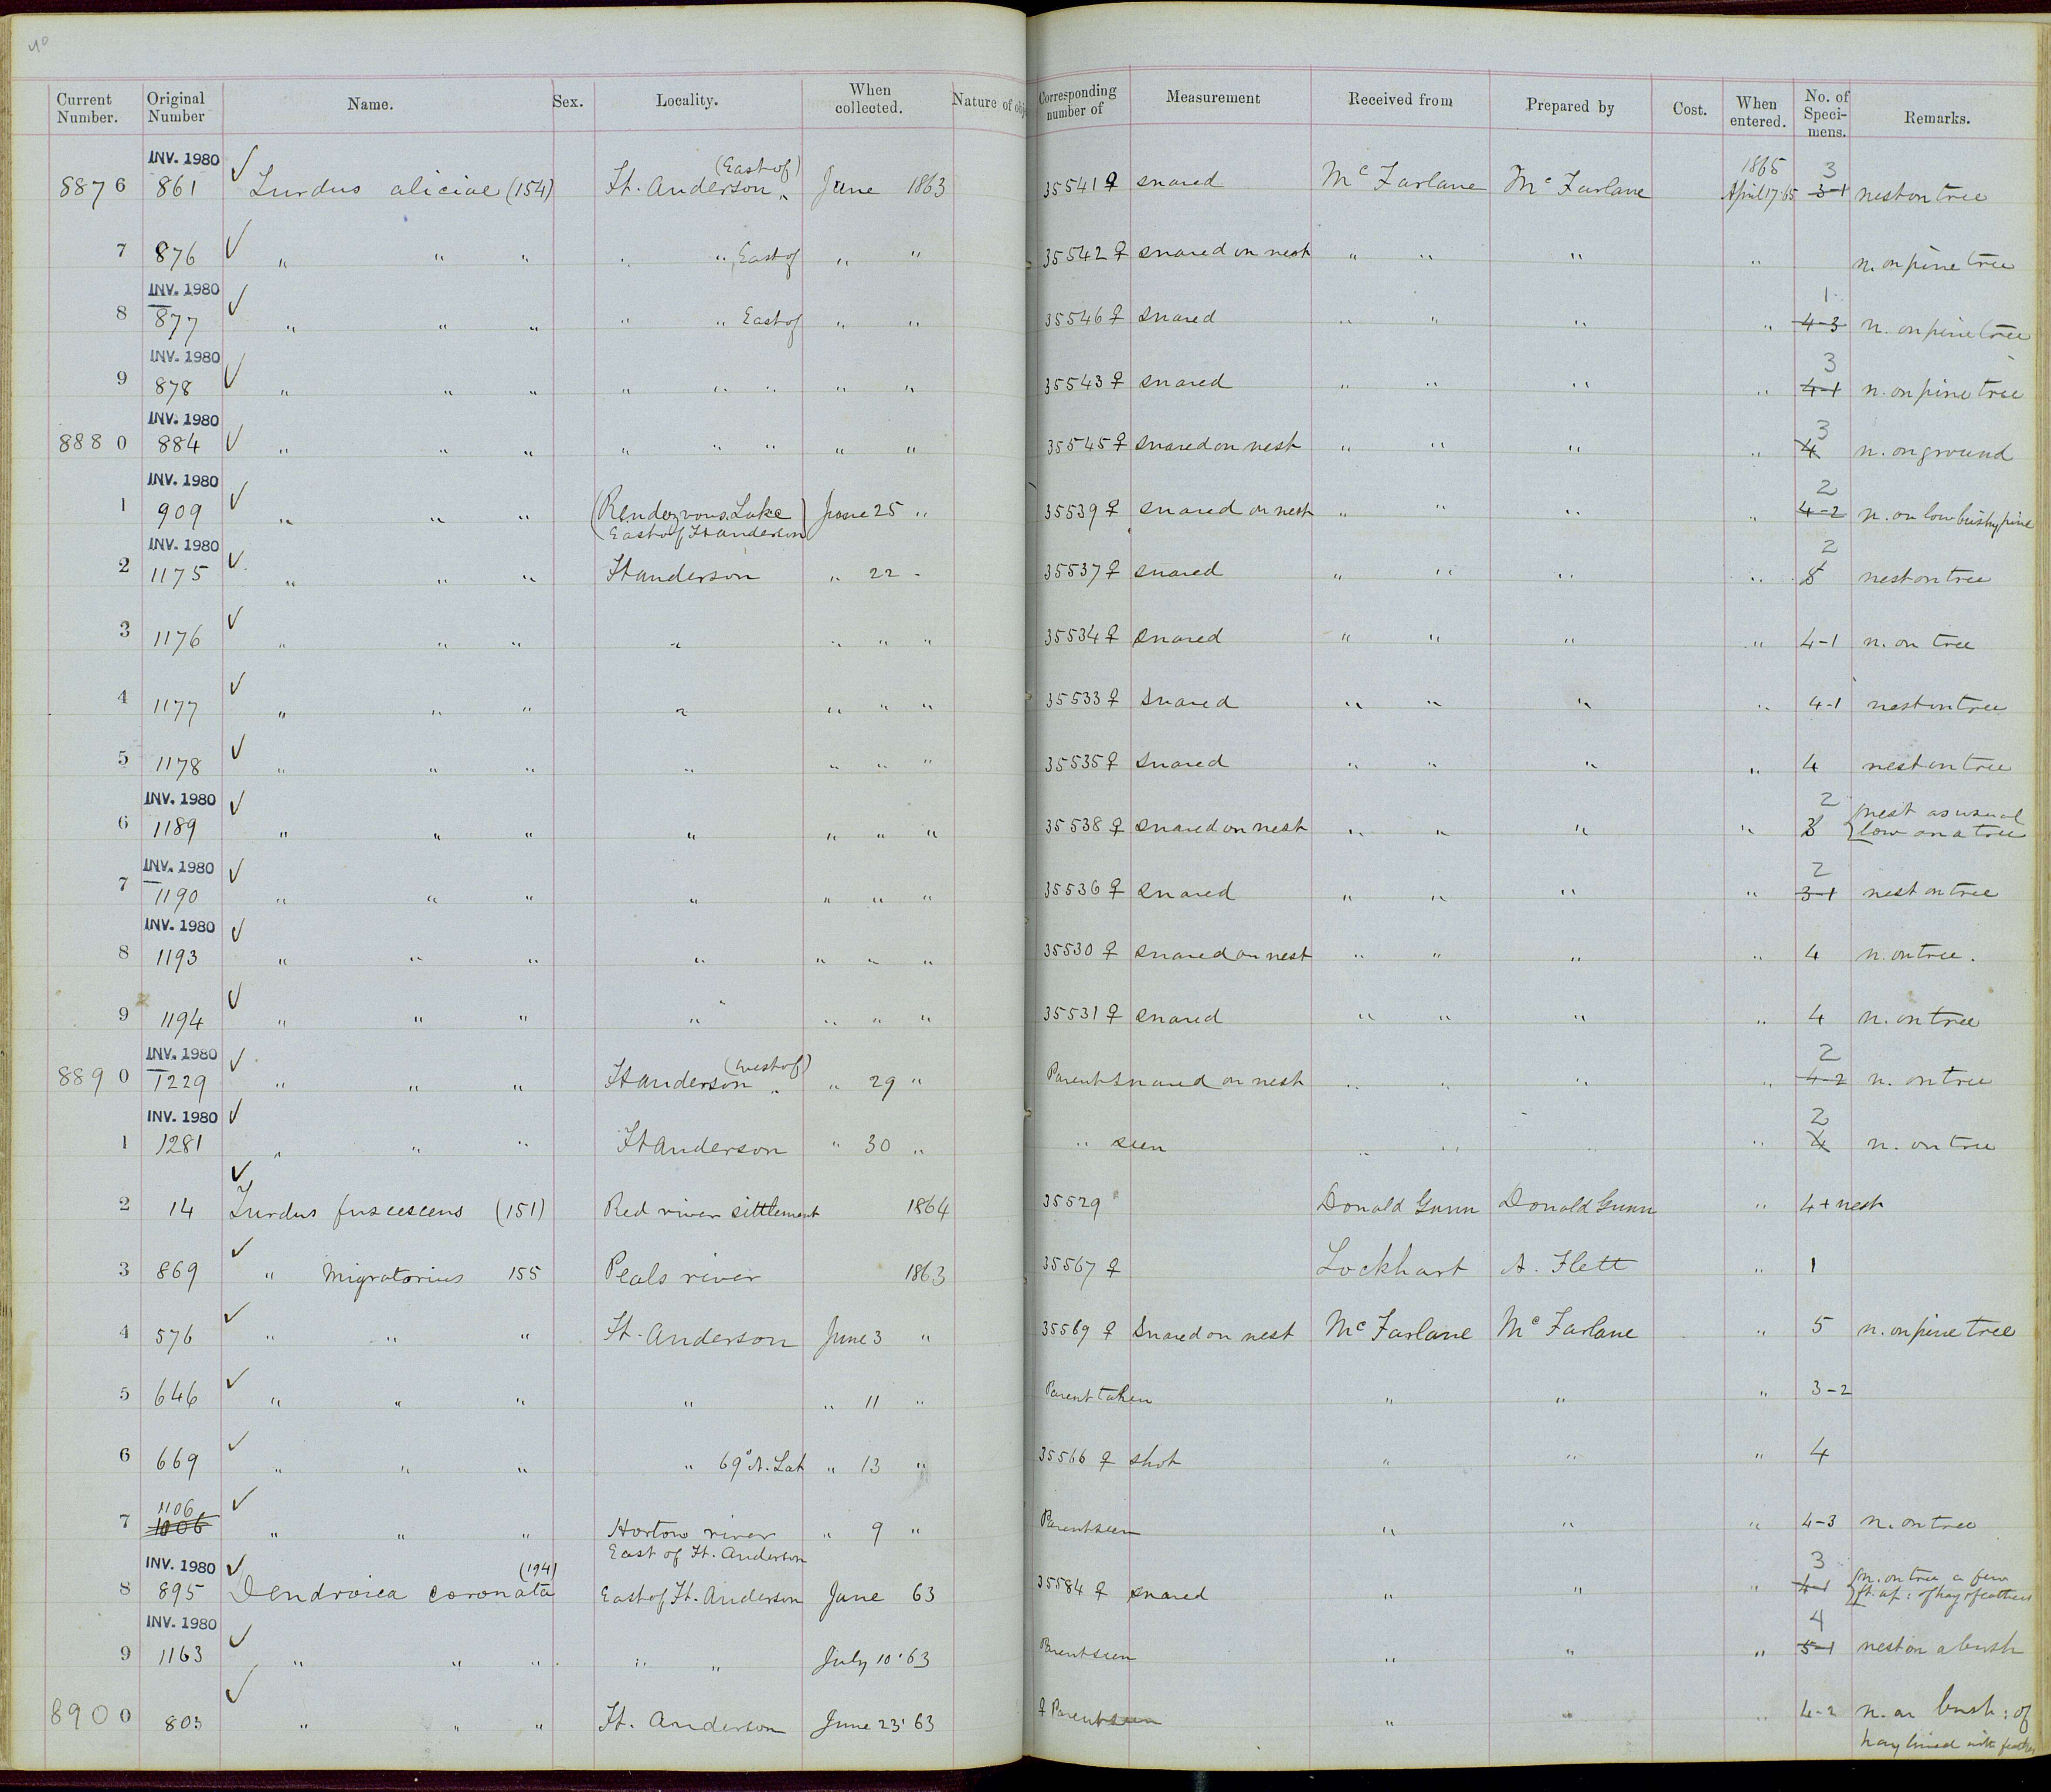 40
Current Number. Original Number Name. Sex. Locality. When collected. Nature of obj Corresponding number of Measurement Received from Prepared by Cost. When entered. No. of Specimens. Remarks.
INV. 1980 (East of) 1865 3
8876 861 ✓ Turdus aliciae (154) Ft. Anderson " June 1863 35541 ♀ snared McFarlane McFarlane April 17 '65 3-1 nest on tree
7 876 ✓ " " " " " East of " " 35542 ♀ snared on nest " " " " n. on pine tree
INV. 1980 1
8 877 ✓ " " " " " East of " " 35546 ♀ snared " " " " 4-3 n. on pine tree
INV. 1980 3
9 878 ✓ " " " " " " " " 35543 ♀ snared " " " " 4-1 n. on pine tree
INV. 1980 3
8880 884 ✓ " " " " " " " " 35545 ♀ snared on nest " " " " 4 n. on ground
INV. 1980 2
1 909 ✓ " " " (Rendezvous Lake) June 25 " 35539 ♀ snared on nest " " " " 4-2 n. on low bushy pine
East of Ft Anderson
INV. 1980 2
2 1175 ✓ " " " Ft Anderson " 22 " 35537 ♀ snared " " " " 5 nest on tree
3 1176 ✓ " " " " " " " 35534 ♀ snared " " " " 4-1 n. on tree
4 1177 ✓ " " " " " " " 35533 ♀ snared " " " " 4-1 nest on tree
5 1178 ✓ " " " " " " " 35535 ♀ snared " " " " 4 nest on tree
INV. 1980 2 nest as usual
6 1189 ✓ " " " " " " " 35538 ♀ snared on nest " " " " 3 low on a tree
INV. 1980 2
7 1190 ✓ " " " " " " " 35536 ♀ snared " " " " 3-1 nest on tree
INV. 1980
8 1193 ✓ " " " " " " " 35530 ♀ snared on nest " " " " 4 n. on tree.
9 1194 ✓ " " " " " " " 35531 ♀ snared " " " " 4 n. on tree
INV. 1980 (West of) 2
8890 1229 ✓ " " " Ft Anderson " " 29 " Parent snared on nest " " " " 4-2 n. on tree
INV. 1980 2
1 1281 ✓ " " " Ft Anderson " 30 " " seen " " " " 4 n. on tree
2 14 ✓ Turdus fuscescens (151) Red river settlement 1864 35529 Donald Gunn Donald Gunn " 4 + nest
3 869 ✓ " migratorius 155 Peals river 1863 35567 ♀ Lockhart A. Flett " 1
4 576 ✓ " " " Ft. Anderson June 3 " 35569 ♀ Snared on nest McFarlane McFarlane " 5 n. on pine tree
5 646 ✓ " " " " " 11 " Parent taken " " " 3-2
6 669 ✓ " " " " 69° N. Lat " 13 " 35566 ♀ shot " " " 4
1106
7 1006 ✓ " " " Horton river " 9 " Parent seen " " " 4-3 n. on tree
East of Ft. Anderson
INV. 1980 (194) 3 n. on tree a few
8 895 ✓ Dendroica coronata East of Ft. Anderson June 63 35584 ♀ snared " " " 4-1 ft. up: of hay & feathers
INV. 1980 4
9 1163 ✓ " " " " " July 10 '63 Parent seen " " " 5-1 nest on a bush
8900 803 ✓ " " " Ft. Anderson June 23 '63 ♀ Parent seen " " " 4-2 n. on bush: of
hay lined with feathers